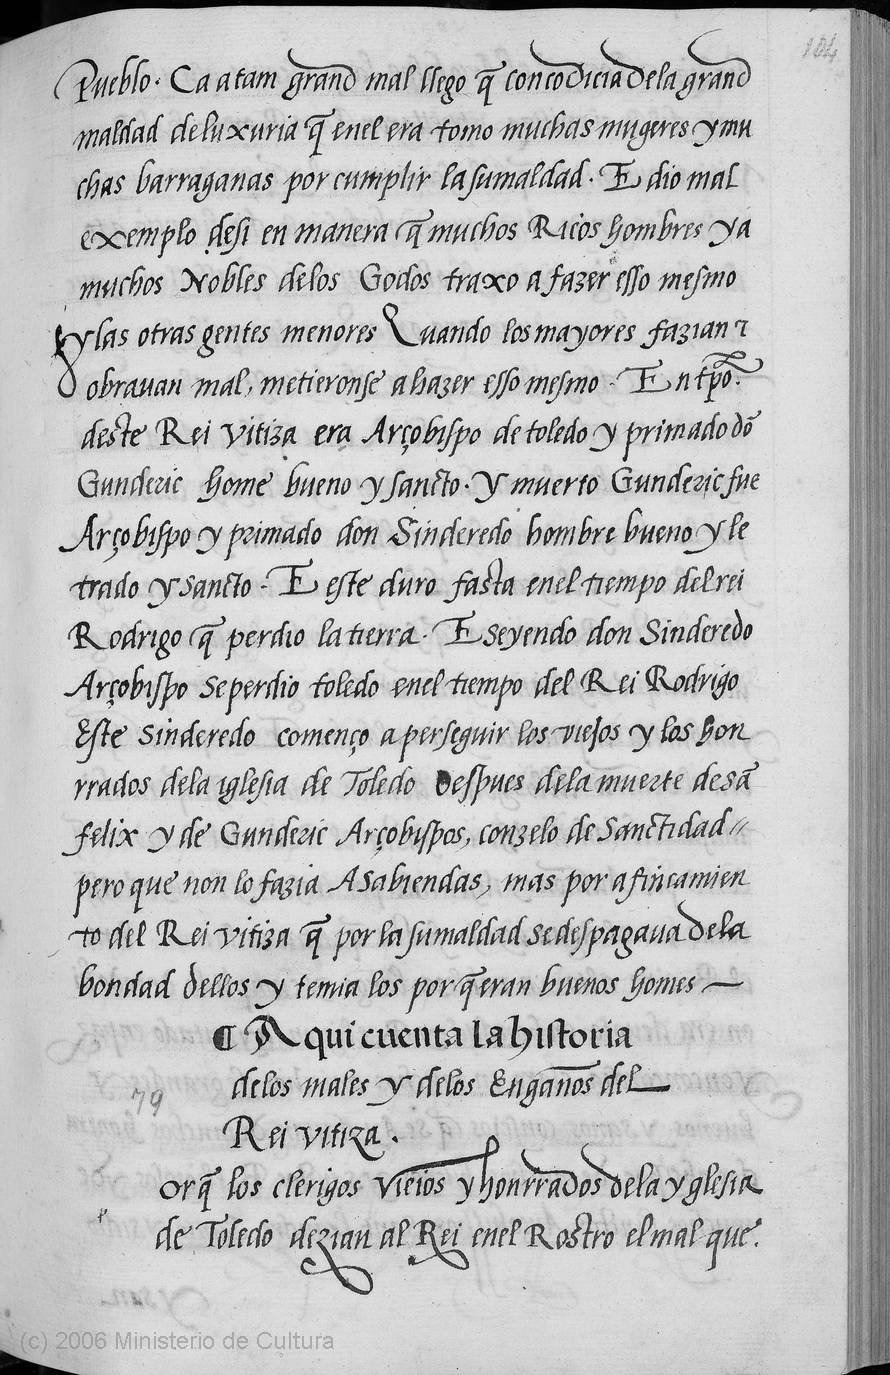 104
Pueblo. Ca a tam grand mal llego q̃ con codicia de la grand
maldad de luxuria q̃ en el era tomo muchas mugeres y mu
chas barraganas por cumplir la su maldad. E dio mal
exemplo desi en manera q̃ muchos Ricos hombres y a
muchos Nobles de los Godos traxo a fazer esso mesmo
y las otras gentes menores Quando los mayores fazian ⁊
obrauan mal, metieronse a hazer esso mesmo. En tp̃o.
deste Rei Vitiza era Arçobispo de toledo y primado dõ
Gunderic home bueno y sancto. Y muerto Gunderic fue
Arçobispo y primado don Sinderedo hombre bueno y le
trado y sancto. E este duro fasta en el tiempo del rei
Rodrigo q̃ perdio la tierra. E seyendo don Sinderedo
Arçobispo se perdio toledo en el tiempo del Rei Rodrigo
Este sinderedo començo a perseguir los viejos y los hon
rrados de la iglesia de Toledo Despues de la muerte de sã
felix y de Gunderic Arçobispos, con zelo de Sanctidad //
pero que non lo fazia A sabiendas, mas por afincamien
to del Rei vitiza q̃ por la su maldad se despagaua de la
bondad dellos y temia los por q̃ eran buenos homes —
¶ Aqui cuenta la historia
de los males y de los Engaños del
79
Rei vitiza.
orq̃ los clerigos viejos y honrrados de la yglesia
p
de Toledo dezian al Rei en el Rostro el mal que.
(c) 2006 Ministerio de Cultura